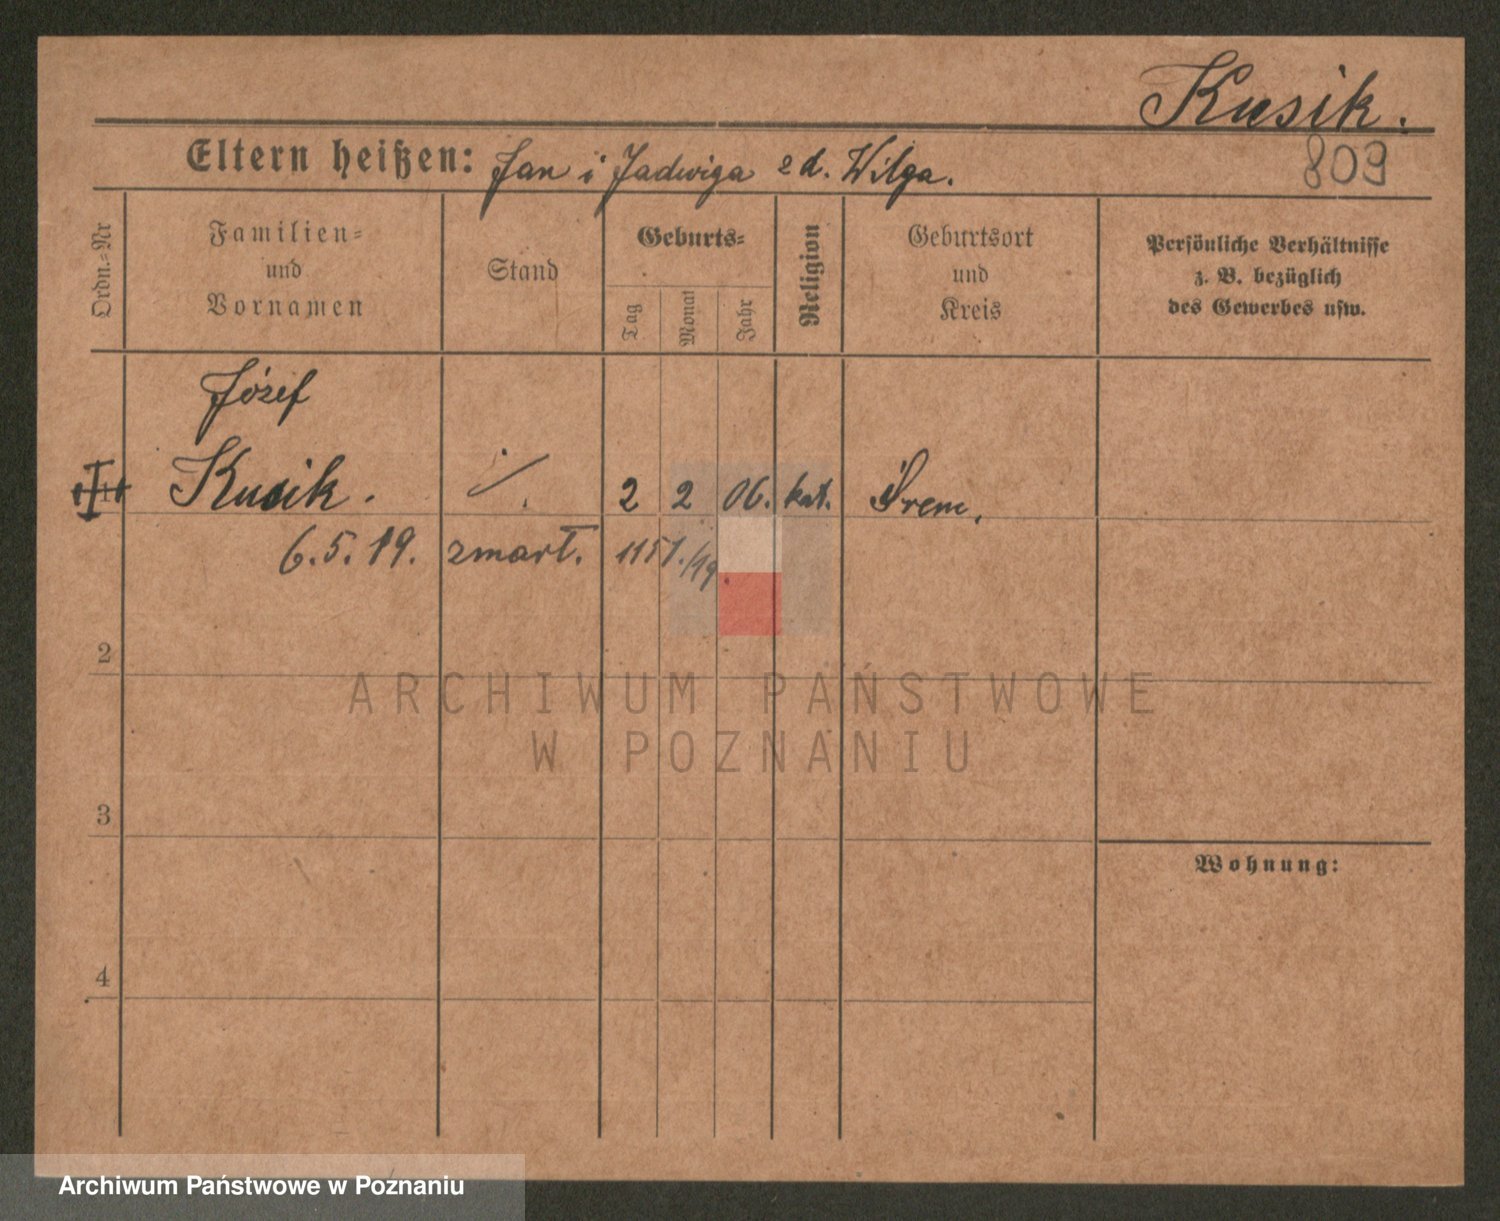 Kusik.
809
Eltern heißen: Jan i Jadwiga z d. Wilga.
Ordn.=Nr
Familien=
und
Vornamen
Stand
Geburts=
Tag
Monat
Jahr
Religion
Geburtsort
und
Kreis
Persönliche Verhältnisse
z. B. bezüglich
des Gewerbes usw.
Józef
Kusik. ./. 2 2 06. kat. Śrem.
6.5.19. zmarł. 1151./19.
2
ARCHIWUM PAŃSTWOWE
W POZNANIU
3
Wohnung:
4
Archiwum Państwowe w Poznaniu